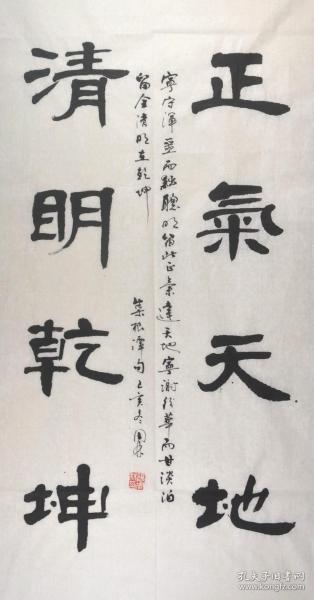 正氣天地
寧守渾噩而黜聰明留此正氣還天地寧謝紛華而甘淡泊
留清明在乾坤
集根譚句己亥冬
清明乾坤
孔夫子旧书网